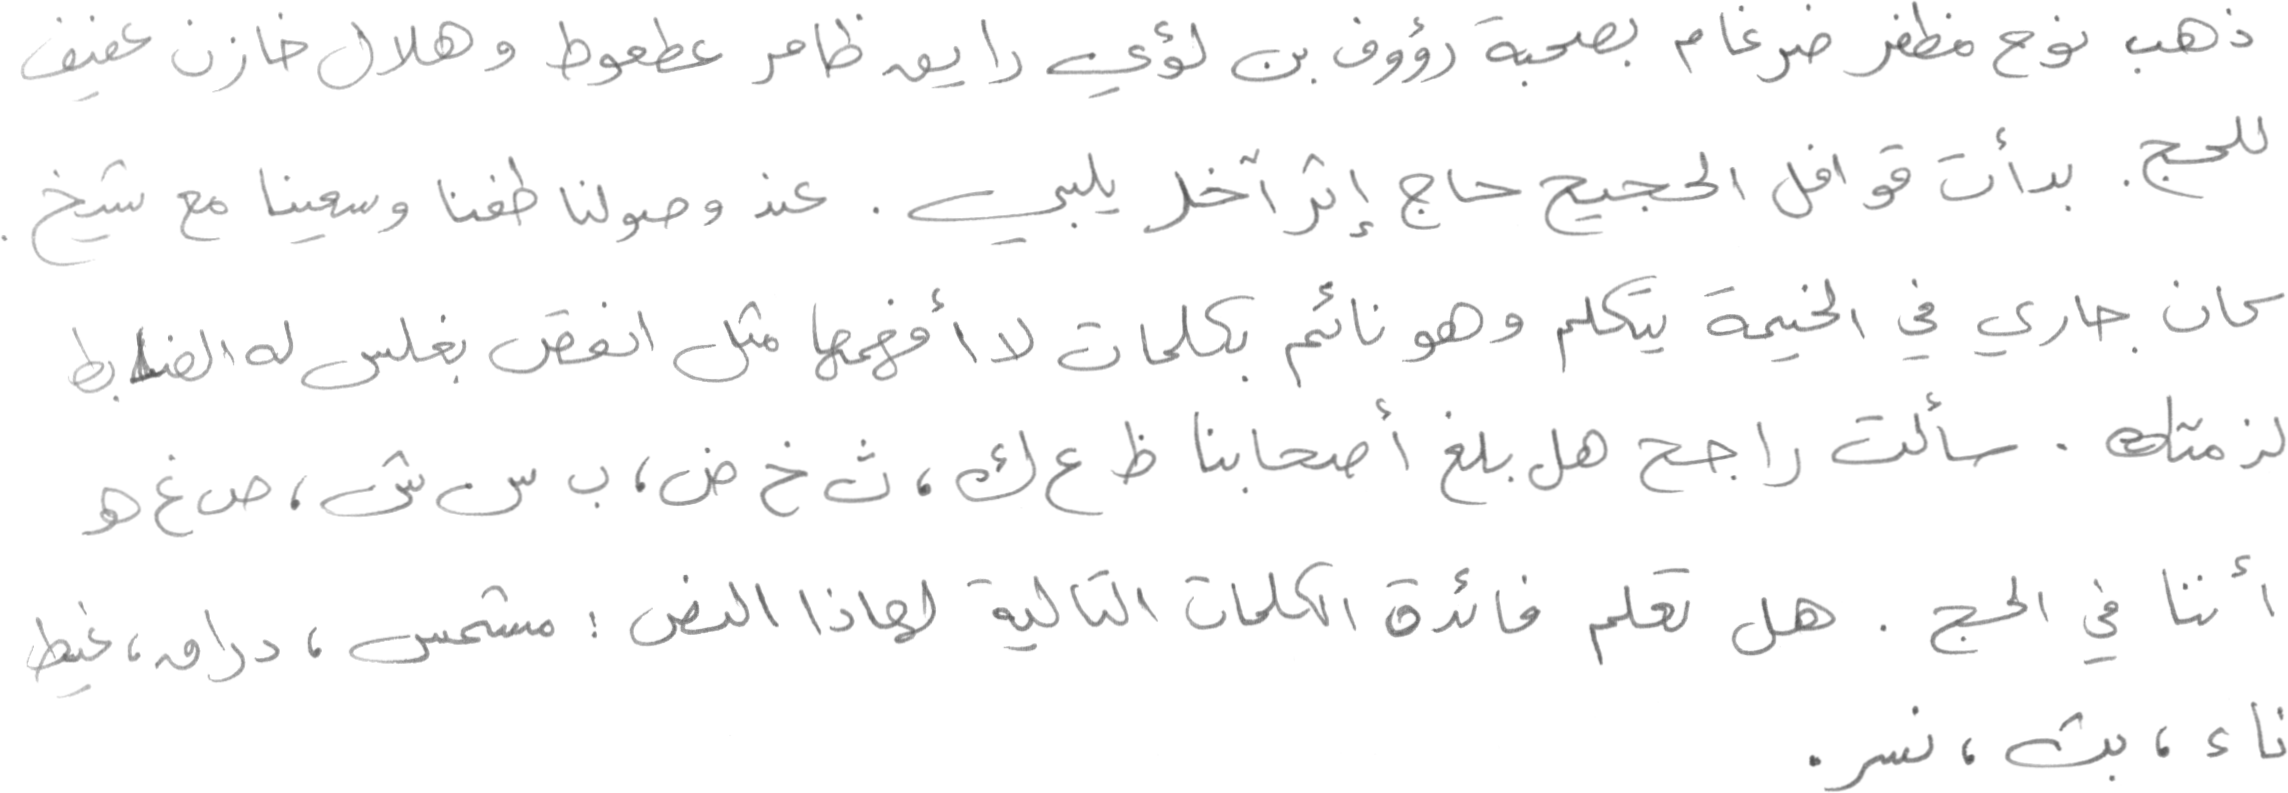 ذهب نوح مظفر ضرغام بصحبة رؤوف بن لؤي رايق ظافر عطعوط وهلال خازن عفيف
للحج. بدأت قوافل الحجيج حاج إثر آخر يلبي. عند وصولنا طفنا وسعينا مع شيخ.
كان جاري في الخيمة يتكلم وهو نائم بكلمات لا أفهمها مثل انفض بغلس له الضابط
لزمتك. سألت راجح هل بلغ أصحابنا ظ ع ك، ث خ ض، ب س ش، ص غ هو
أننا في الحج. هل تعلم فائدة الكلمات التالية لهاذا النص: مشمس، دراق، غيظ
ناء، بث، نسر.